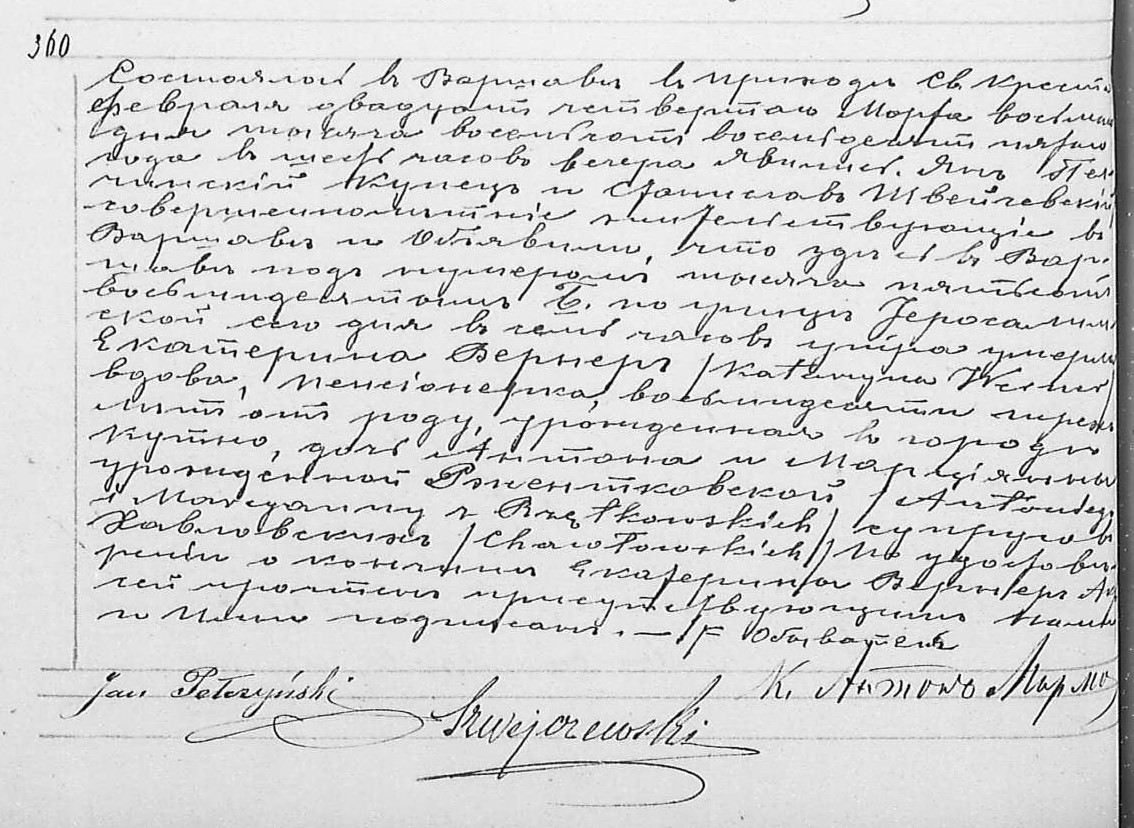 360
Состоялось въ Варшавѣ въ приходѣ Св. Креста
Февраля двадцать четвертаго Марта восьмаго
дня тысяча восемьсотъ восемьдесятъ пятаго
года въ шесть часовъ вечера явились. Янъ Пел-
чинскій Купецъ и Станиславъ Швейчевскій
совершеннолѣтніе жительствующіе въ
Варшавѣ и Объявили, что здѣсь въ Вар-
шавѣ подъ нумеромъ тысяча пятьсотъ
восьмидесятымъ Б. по улицѣ Іерозолим
ской сего дня въ семь часовъ утра умерла
Екатерина Вернеръ /Katarzyna Werner/
вдова, пенсіонерка, восьмидесяти
лѣтъ отъ роду, урожденная въ городѣ
Кутно, дочь Антона и Марціянны
урожденной Ржентковской /Antoniego
i Marcyanny z Rzętkowskich/ супруговъ
Хавловскихъ /Chawłowskich/ По удостовѣ-
реніи о кончинѣ Екатерины Вернеръ Актъ
сей прочтенъ присутствующимъ Нами
и Ими подписанъ. — Обыватель
Jan Pełczyński
Szwejczewski
К. Антонъ